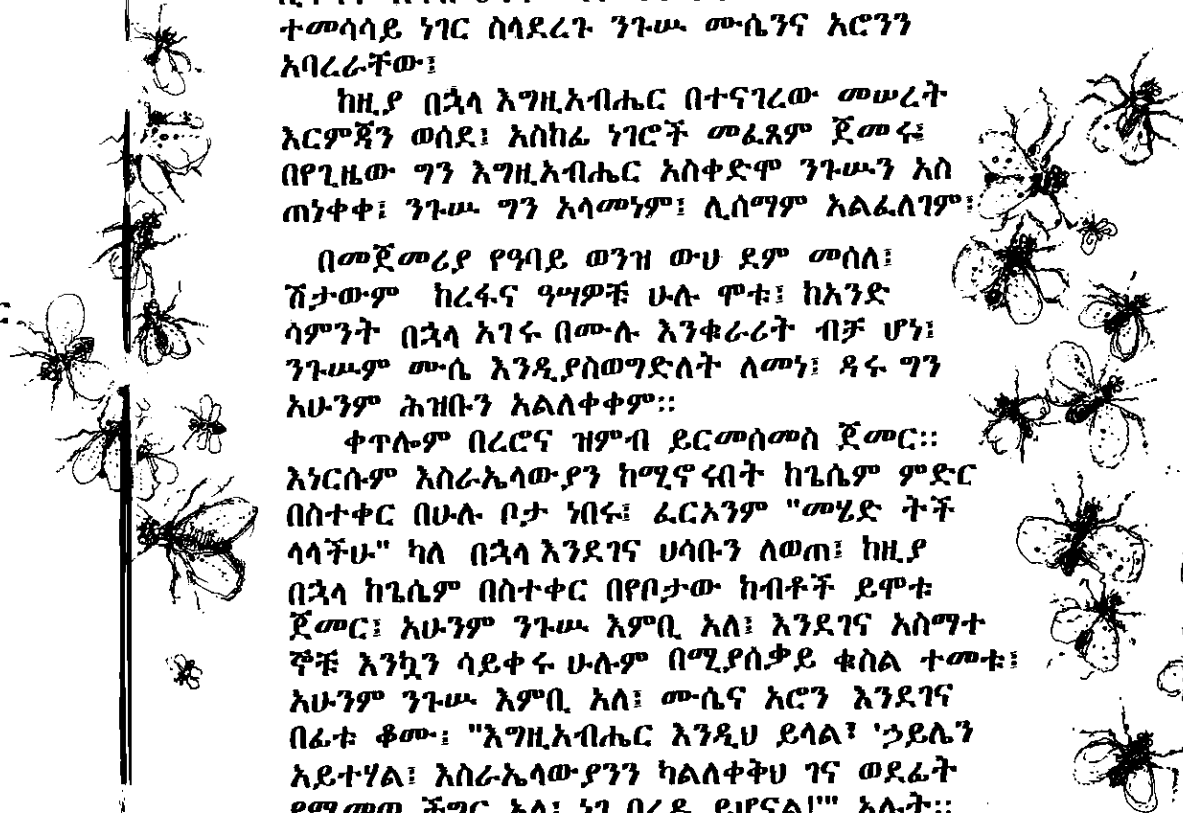 ተመሳሳይ ነገር ስላደረጉ ንጉሡ ሙሴንና አሮንን
አባረራቸው፤
ከዚያ በኋላ እግዚአብሔር በተናገረው መሠረት
እርምጃን ወሰደ፤ አስከፊ ነገሮች መፈጸም ጀመሩ፤
በየጊዜው ግን እግዚአብሔር አስቀድሞ ንጉሡን አስ
ጠነቀቀ፤ ንጉሡ ግን አላመነም፤ ሊሰማም አልፈለገም፤
በመጀመሪያ የዓባይ ወንዝ ውሀ ደም መሰለ፤
ሽታውም ከረፋና ዓሣዎቹ ሁሉ ሞቱ፤ ከአንድ
ሳምንት በኋላ አገሩ በሙሉ እንቁራሪት ብቻ ሆነ፤
ንጉሡም ሙሴ እንዲያስወግድለት ለመነ፤ ዳሩ ግን
አሁንም ሕዝቡን አልለቀቀም።
ቀጥሎም በረሮና ዝምብ ይርመሰመስ ጀመር።
እነርሱም እስራኤላውያን ከሚኖሩበት ከጌሴም ምድር
በስተቀር በሁሉ ቦታ ነበሩ፤ ፈርኦንም "መሄድ ትች
ላላችሁ" ካለ በኋላ እንደገና ሀሳቡን ለወጠ፤ ከዚያ
በኋላ ከጌሴም በስተቀር በየቦታው ከብቶች ይሞቱ
ጀመር፤ አሁንም ንጉሡ እምቢ አለ፤ እንደገና አስማተ
ኞቹ እንኳን ሳይቀሩ ሁሉም በሚያሰቃይ ቁስል ተመቱ፤
አሁንም ንጉሡ እምቢ አለ፤ ሙሴና አሮን እንደገና
በፊቱ ቆሙ፤ "እግዚአብሔር እንዲህ ይላል፣ 'ኃይሌን
አይተሃል፤ እስራኤላውያንን ካልለቀቅህ ገና ወደፊት
የሚመጣ ችግር አለ፤ ነገ በረዶ ይሆናል!'" አሉት።